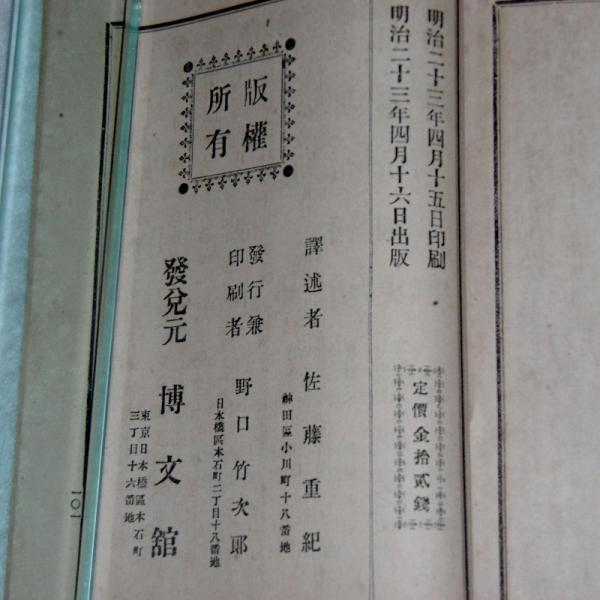 明治二十三年四月十五日印刷
明治二十三年四月十六日出版
定價金拾貳錢
版權
所有
譯述者 佐藤重紀
神田區小川町十八番地
發行兼
印刷者 野口竹次郎
日本橋區本石町二丁目十八番地
發兌元 博文舘
東京日本橋區本石町
三丁目十六番地
101